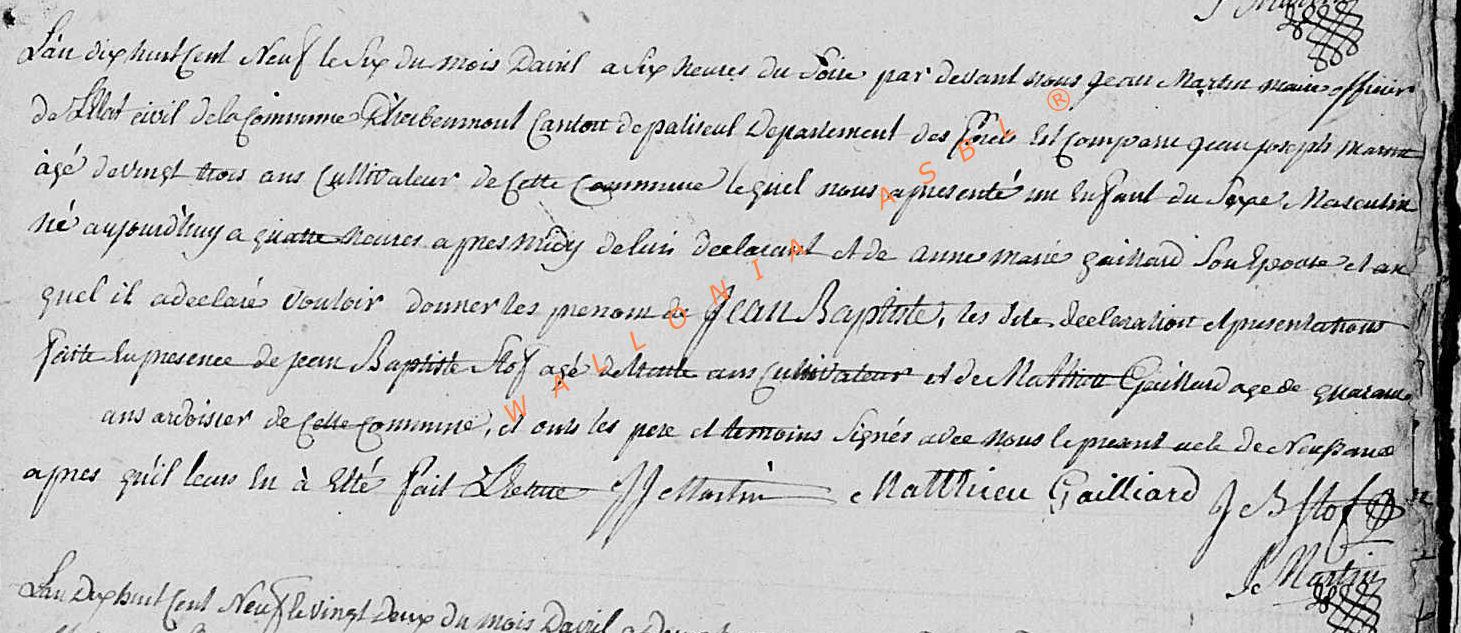 J Martin
L'an dix huit Cent Neuf le six du mois Davril a six heures du Soire par devant nous jean Martin maire officier
de L'Etat civil de la Commune D'herbeumont Canton de paliseul Departement des forets Est Comparu jean joseph Martin
àgé de vingt trois ans Cultivateur de Cette Commune lequel nous a presenté un Enfant du Sexe Masculin
né aujourd'huy a quatre heures apres midy de lui declarant et de anne marie gaillard Son Epouse et au
quel il a declaré vouloir donner les prenom de Jean Baptiste, les dite declaration et presentations
faite En presence de jean Baptiste Stof agé de trente ans Cultivateur et de Mathieu Gaillard age de quarante
ans ardoisier de Cette Commune, et onts les pere et temoins Signés avec nous le present acte de Naissance
apres qu'il leurs En à Etté fait Lecture JJ Martin Matthieu Gailliard J B Stof
J Martin
L'an Dix huit Cent Neuf le vingt Deux du mois Davril a
WALLONIA ASBL ®